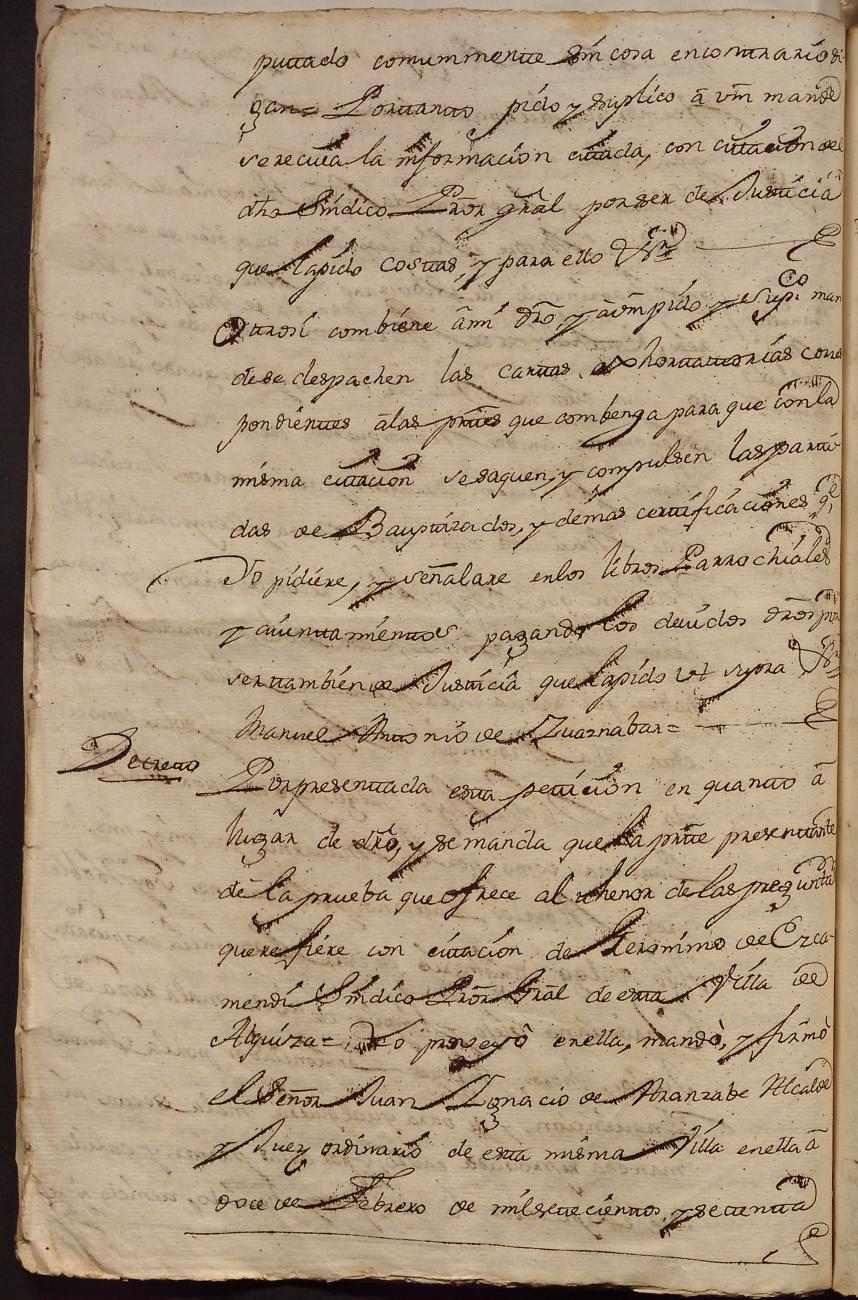 puttado comunmente sin cosa encontrario di-
gan= Portanto pido y suplico â vm mande
se recuia la informacion cittada, con cittacion del
dho Sindico Pror gral por ser de Justicia
que la pido costtas, y para ello &ra
Otrosi combiene âmi dro y avm pido y supco man
de se despachen las cartas exhortattorias corres
pondientes âlas prttes que combenga para que con la
misma cittacion se saquen, y compulsen las partti-
das de Bauptizados, y demas certtificaciones, qe
Yo pidiere, y señalare enlos libros Parrochiales
y aiunttamienttos pagando los deuidos dros por
ser tambien de Justicia que la pido ut supra &ra
Manuel Anttonio de Zuaznabar=
Decretto
Por presenttada esta petticion en quantto â
lugar de dro, y se manda que la prtte presenttante
dè la prueba que ofrece al thenor de las pregunttas
que refiere con cittacion de Geronimo de Ezca-
mendi Sindico Pror Gral de esta Villa de
Alquiza= Lo proveyô en ella, mandò, y firmò
el Señor Juan Ignacio de Aranzabe Alcalde
y Juez ordinario de esta misma Villa en ella â
doce de Febrero de mil settecienttos y settentta